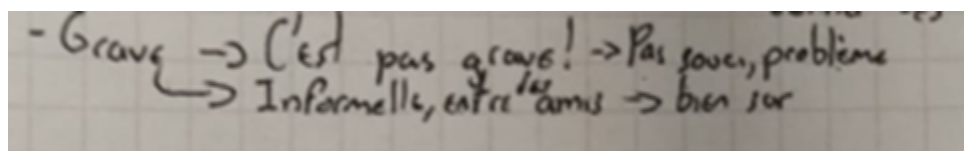 - Grave → C'est pas grave! → Pas souci, problème
↳ Informelle, entre les amis → bien sur